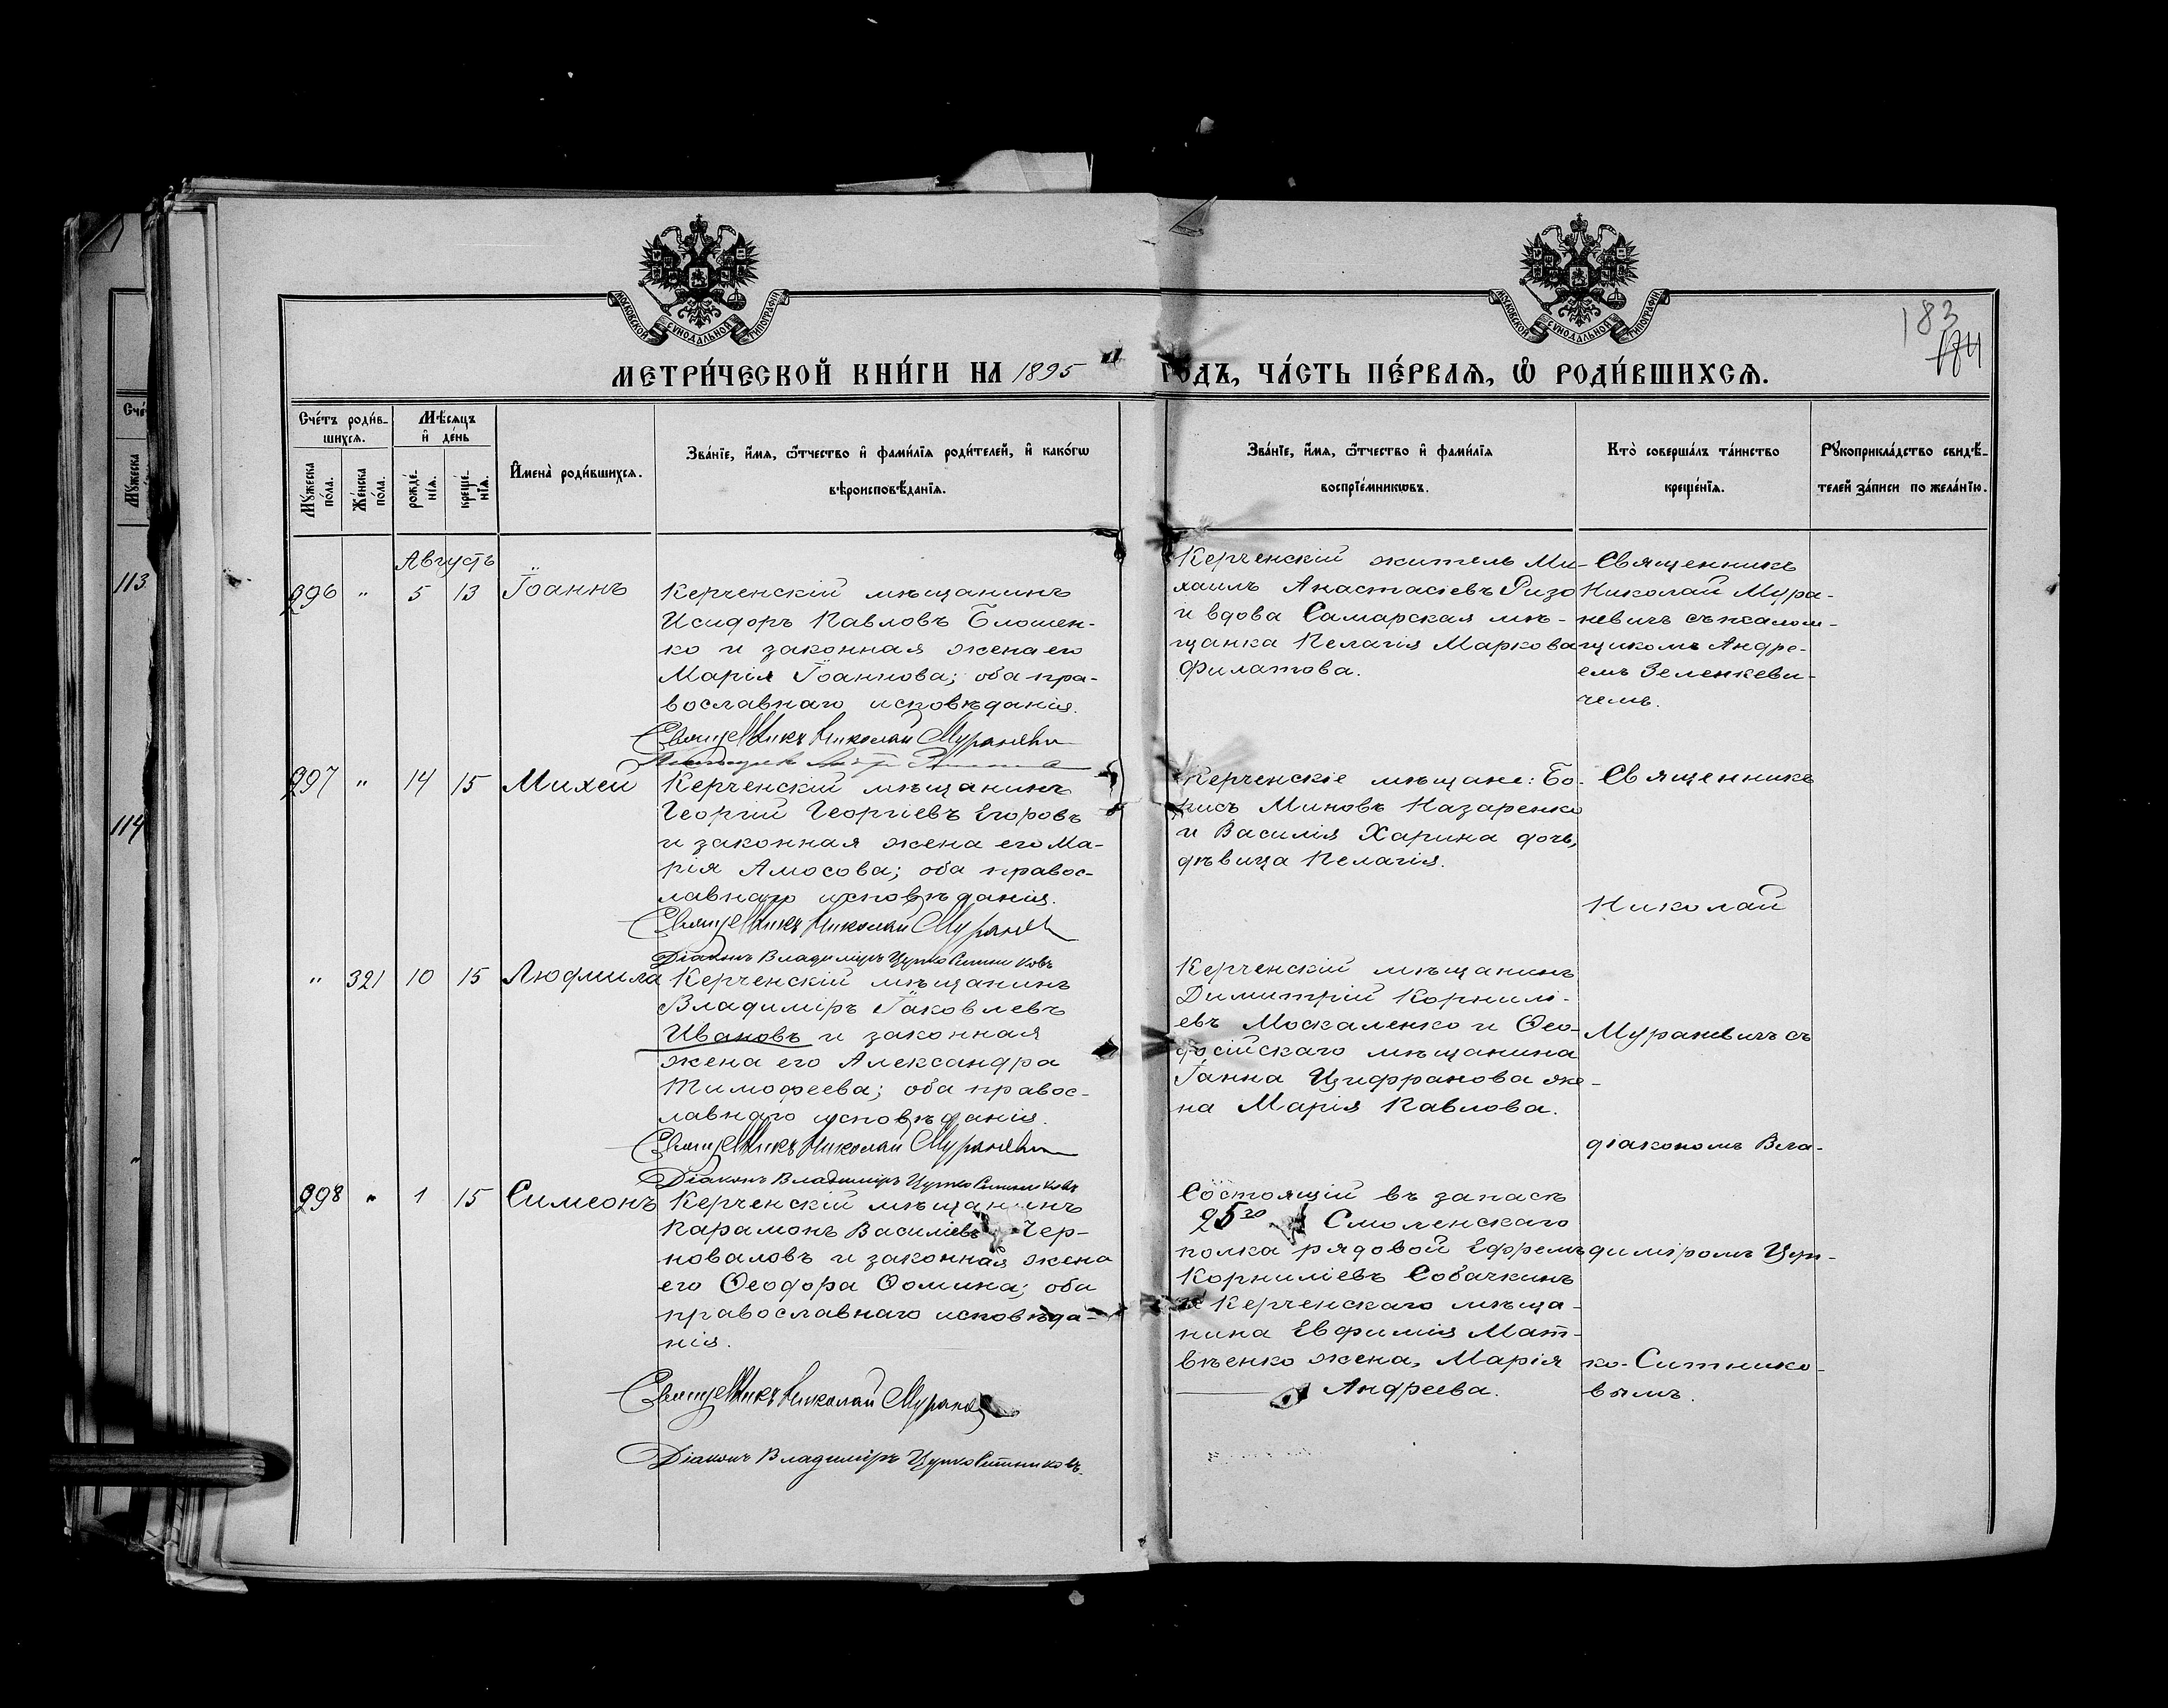 МОСКОВСКОЙ СУНОДАЛЬНОЙ ТИПОГРАФІИ
МОСКОВСКОЙ СУНОДАЛЬНОЙ ТИПОГРАФІИ
183
184
МЕТРИ́ЧЕСКОЙ КНИ́ГИ НА 1895 ГОДЪ, ЧА́СТЬ ПЕ́РВАѦ, Ѽ РОДИ́ВШИХСѦ.
Сче́тъ роди́в-
шихсѧ.
Мꙋ́жеска по́ла.
Же́нска по́ла.
Мѣ́сѧцъ
и҆ де́нь
рожде́-нїѧ.
креще́-нїѧ.
И҆мена̀ роди́вшихсѧ.
Зва́нїе, и҆́мѧ, ѻ҆́тчество и҆ фами́лїѧ роди́телей, и҆ како́гѡ
вѣроисповѣ́данїѧ.
Зва́нїе, и҆́мѧ, ѻ҆́тчество и҆ фами́лїѧ
воспрїе́мникѡвъ.
Кто̀ соверша́лъ та́инство
креще́нїѧ.
Рꙋкоприкла́дство свидѣ́-
телей за́писи по жела́нїю.
Мꙋ́жеска
113
114
Августъ
296 " 5 13 Іоаннъ
Керченскій мѣщанинъ
Исидоръ Павловъ Блошен-
ко и законная жена его
Марія Іоаннова; оба пра-
вославнаго исповѣданія.
Священникъ Николай Мураневичъ
Керченскій житель Ми-
хаилъ Анастасіевъ Ризо
и вдова Самарская мѣ-
щанка Пелагія Маркова
Филатова.
Священникъ
Николай Мура-
невичъ съ псалом-
щикомъ Андре-
емъ Зеленкеви-
чемъ.
297 " 14 15 Михей
Керченскій мѣщанинъ
Георгій Георгіевъ Егоровъ
и законная жена его Ма-
рія Амосова; оба правос-
лавнаго исповѣданія.
Священникъ Николай Мураневичъ
Діаконъ Владиміръ Цурко Ситниковъ
Керченскіе мѣщане: Бо-
рисъ Миновъ Назаренко
и Василія Харина дочь,
дѣвица Пелагія.
Священникъ
Николай
" 321 10 15 Людмила
Керченскій мѣщанинъ
Владиміръ Іаковлевъ
Ивановъ и законная
жена его Александра
Тимофеева; оба правос-
лавнаго исповѣданія.
Священникъ Николай Мураневичъ
Діаконъ Владиміръ Цурко Ситниковъ
Керченскій мѣщанинъ
Димитрій Корнилі-
евъ Москаленко и Ѳео-
досійскаго мѣщанина
Іанна Цифранова же-
на Марія Павлова.
Мураневичъ съ
діакономъ Вла-
298 " 1 15 Симеонъ
Керченскій мѣщанинъ
Карамонъ Василіевъ Чер-
новаловъ и законная жена
его Ѳеодора Ѳомина; оба
православнаго исповѣда-
нія.
Священникъ Николай Муране
Діаконъ Владиміръ Цурко Ситниковъ.
Состоящій въ запасѣ
25го Смоленскаго
полка рядовой Ефремъ
Корниліевъ Собачкинъ
и Керченскаго мѣща-
нина Евфимія Мат-
вѣенко жена, Марія
Андреева.
диміромъ Цур-
ко-Ситнико-
вымъ.